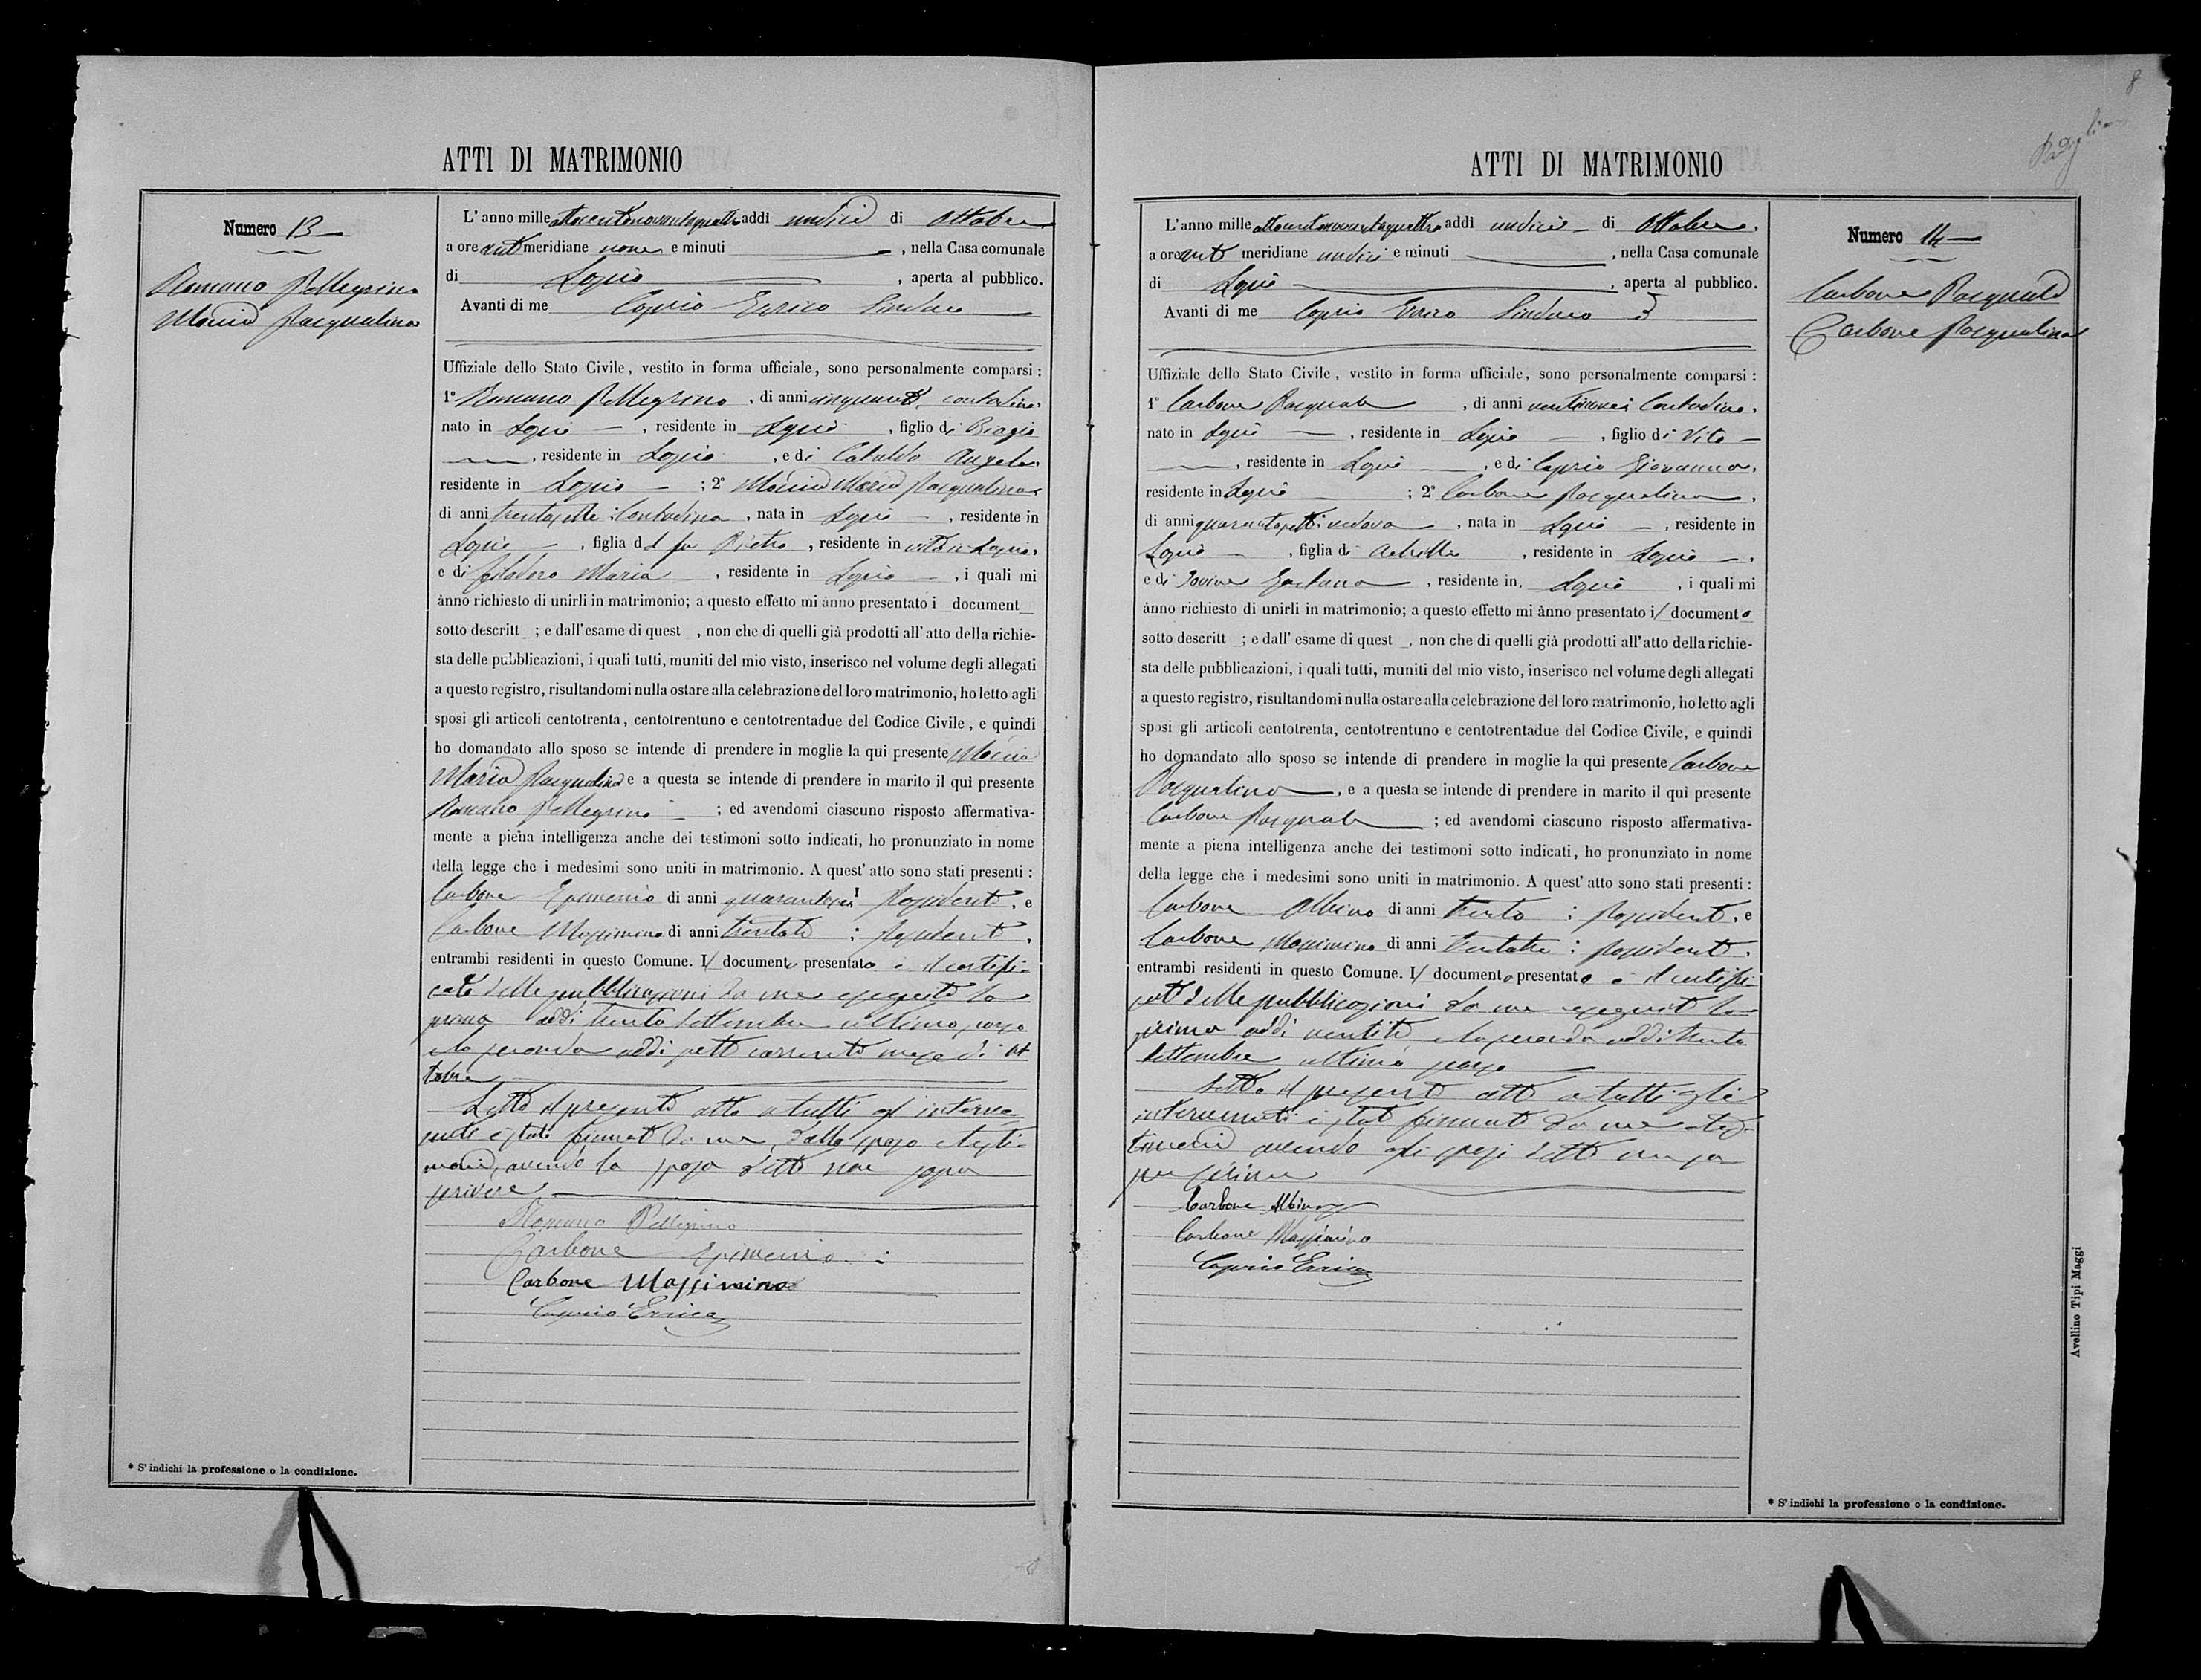 ATTI DI MATRIMONIO
Numero 13
Romano Pellegrino
Pasqualina
L'anno mille ottocentonovantaquattro addì undici di Ottobre
a ore ant meridiane nove e minuti , nella Casa comunale
di Lapio , aperta al pubblico.
Avanti di me Caprio Errico Sindaco
Uffiziale dello Stato Civile, vestito in forma ufficiale, sono personalmente comparsi:
1° Romano Pellegrino , di anni contadino,
nato in Lapio , residente in Lapio , figlio di Biagio
, residente in Lapio , e di Cataldo Angela
residente in Lapio ; 2° Maria Pasqualina
di anni trentasette contadina , nata in Lapio , residente in
Lapio , figlia del fu Pietro , residente in vita in Lapio,
e di Maria , residente in Lapio , i quali mi
ànno richiesto di unirli in matrimonio; a questo effetto mi ànno presentato i document
sotto descritt ; e dall'esame di quest , non che di quelli già prodotti all'atto della richie-
sta delle pubblicazioni, i quali tutti, muniti del mio visto, inserisco nel volume degli allegati
a questo registro, risultandomi nulla ostare alla celebrazione del loro matrimonio, ho letto agli
sposi gli articoli centotrenta, centotrentuno e centotrentadue del Codice Civile, e quindi
ho domandato allo sposo se intende di prendere in moglie la qui presente
Maria Pasqualina e a questa se intende di prendere in marito il qui presente
Romano Pellegrino ; ed avendomi ciascuno risposto affermativa-
mente a piena intelligenza anche dei testimoni sotto indicati, ho pronunziato in nome
della legge che i medesimi sono uniti in matrimonio. A quest'atto sono stati presenti:
Carbone Epimenio di anni quarantasei possidente, e
Carbone Massimino di anni trentatre ; possidente,
entrambi residenti in questo Comune. Il documento presentato è il certifi-
cato delle pubblicazioni da me eseguite la
prima addì trenta Settembre ultimo scorso
e la seconda addì sette corrente mese di Ot
tobre
Letto il presente atto a tutti gl'interve-
nuti è stato firmato da me, dallo sposo e testi-
moni, avendo la sposa detto non saper
scrivere
Romano Pellegrino
Carbone Epimenio
Carbone Massimino
Caprio Errico
* S'indichi la professione o la condizione.
8
ATTI DI MATRIMONIO
Numero 14
Carbone Pasquale
Carbone Pasqualina
L'anno mille ottocentonovantaquattro addì undici di Ottobre,
a ore ant meridiane undici e minuti , nella Casa comunale
di Lapio , aperta al pubblico.
Avanti di me Caprio Errico Sindaco
Uffiziale dello Stato Civile, vestito in forma ufficiale, sono personalmente comparsi:
1° Carbone Pasquale , di anni contadino,
nato in Lapio , residente in Lapio , figlio di Vito
, residente in Lapio , e di Caprio Giovanna,
residente in Lapio ; 2° Carbone Pasqualina,
di anni quarantasette vedova , nata in Lapio , residente in
Lapio , figlia di Achille , residente in Lapio ,
e di Iovine Gaetana , residente in, Lapio , i quali mi
ànno richiesto di unirli in matrimonio; a questo effetto mi ànno presentato il documento
sotto descritt ; e dall'esame di quest , non che di quelli già prodotti all'atto della richie-
sta delle pubblicazioni, i quali tutti, muniti del mio visto, inserisco nel volume degli allegati
a questo registro, risultandomi nulla ostare alla celebrazione del loro matrimonio, ho letto agli
sposi gli articoli centotrenta, centotrentuno e centotrentadue del Codice Civile, e quindi
ho domandato allo sposo se intende di prendere in moglie la qui presente Carbone
Pasqualina , e a questa se intende di prendere in marito il qui presente
Carbone Pasquale ; ed avendomi ciascuno risposto affermativa-
mente a piena intelligenza anche dei testimoni sotto indicati, ho pronunziato in nome
della legge che i medesimi sono uniti in matrimonio. A quest'atto sono stati presenti:
Carbone Albino di anni trenta ; possidente, e
Carbone Massimino di anni trentatre ; possidente,
entrambi residenti in questo Comune. Il documento presentato è il certifi-
cato delle pubblicazioni da me eseguite la
prima addì ventitre e la seconda addì trenta
Settembre ultimo scorso
Letto il presente atto a tutti gli
intervenuti è stato firmato da me e tes-
timoni avendo gli sposi detto non sa-
per firmare
Carbone Albino
Carbone Massimino
Caprio Errico
* S'indichi la professione o la condizione.
Avellino Tipi Maggi